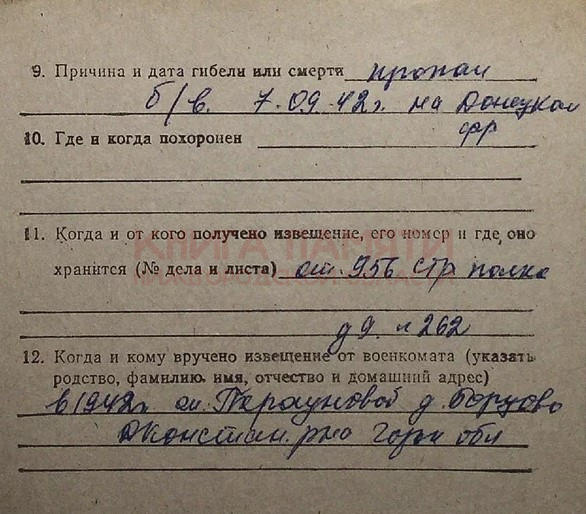 9. Причина и дата гибели или смерти пропал
б/в. 7.09.42г. на Донецком
фр
10. Где и когда похоронен
11. Когда и от кого получено извещение, его номер и где оно
КНИГА ПАМЯТИ
хранится (№ дела и листа) от 956 стр полка
НИЖЕГОРОДСКОЙ ОБЛАСТИ
д 9. л 262
12. Когда и кому вручено извещение от военкомата (указать
родство, фамилию, имя, отчество и домашний адрес)
в 1942г. д. Борцово
Дконстан. рна Горьк обл